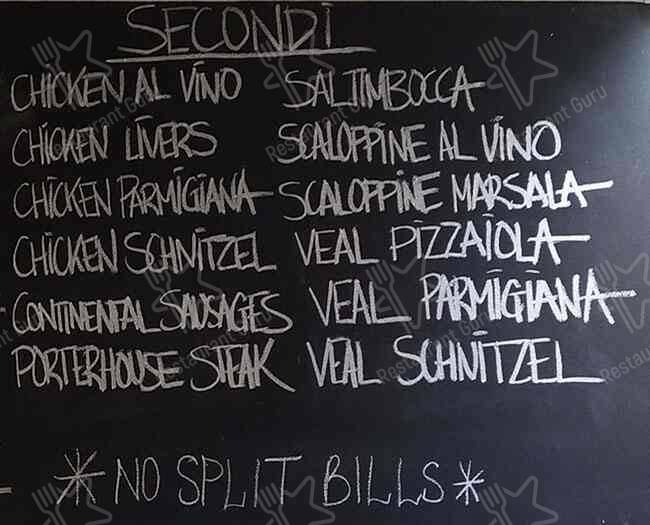 SECONDI
CHICKEN AL VINO
CHICKEN LIVERS
CHICKEN PARMIGIANA
CHICKEN SCHNITZEL
CONTINENTAL SAUSAGES
PORTERHOUSE STEAK
SALTIMBOCCA
SCALOPPINE AL VINO
SCALOPPINE MARSALA
VEAL PIZZAIOLA
VEAL PARMIGIANA
VEAL SCHNITZEL
* NO SPLIT BILLS *
Restaurant Guru